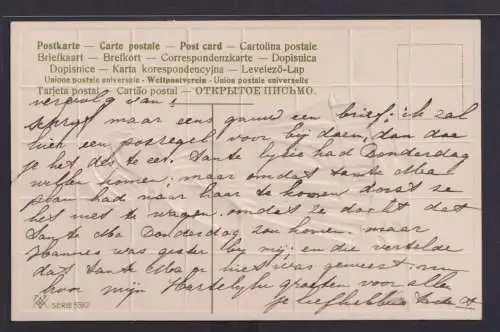 Postkarte — Carte postale — Post card — Cartolina postale
Briefkaart — Brefkort — Correspondenzkarte — Dopisnica
Dopisnice — Karta korespondencyjna — Levelező-Lap
Union postale universelle — Weltpostverein — Unione postale universelle
Tarjeta postal — Cartão postal — ОТКРЫТОЕ ПИСЬМО.
vervolg van 1
schryf maar eens gauw een brief; ik zal
hier een postzegel voor bij doen, dan doe
je het des te eer. Tante had Donderdag
willen komen; maar omdat tante Ma
plan had naar haar te komen dorst se
het niet te wagen. omdat ze dacht dat
tante Ma Donderdag zou komen. maar
Joannes was gister bij mij en die vertelde
dat tante Ma er niet was geweest. nu
voor mijn Hartelijke groeten voor allen
je liefhebbende tante
SERIE 5392